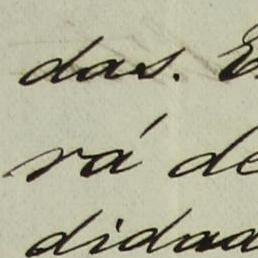 das. E
rá de
didad